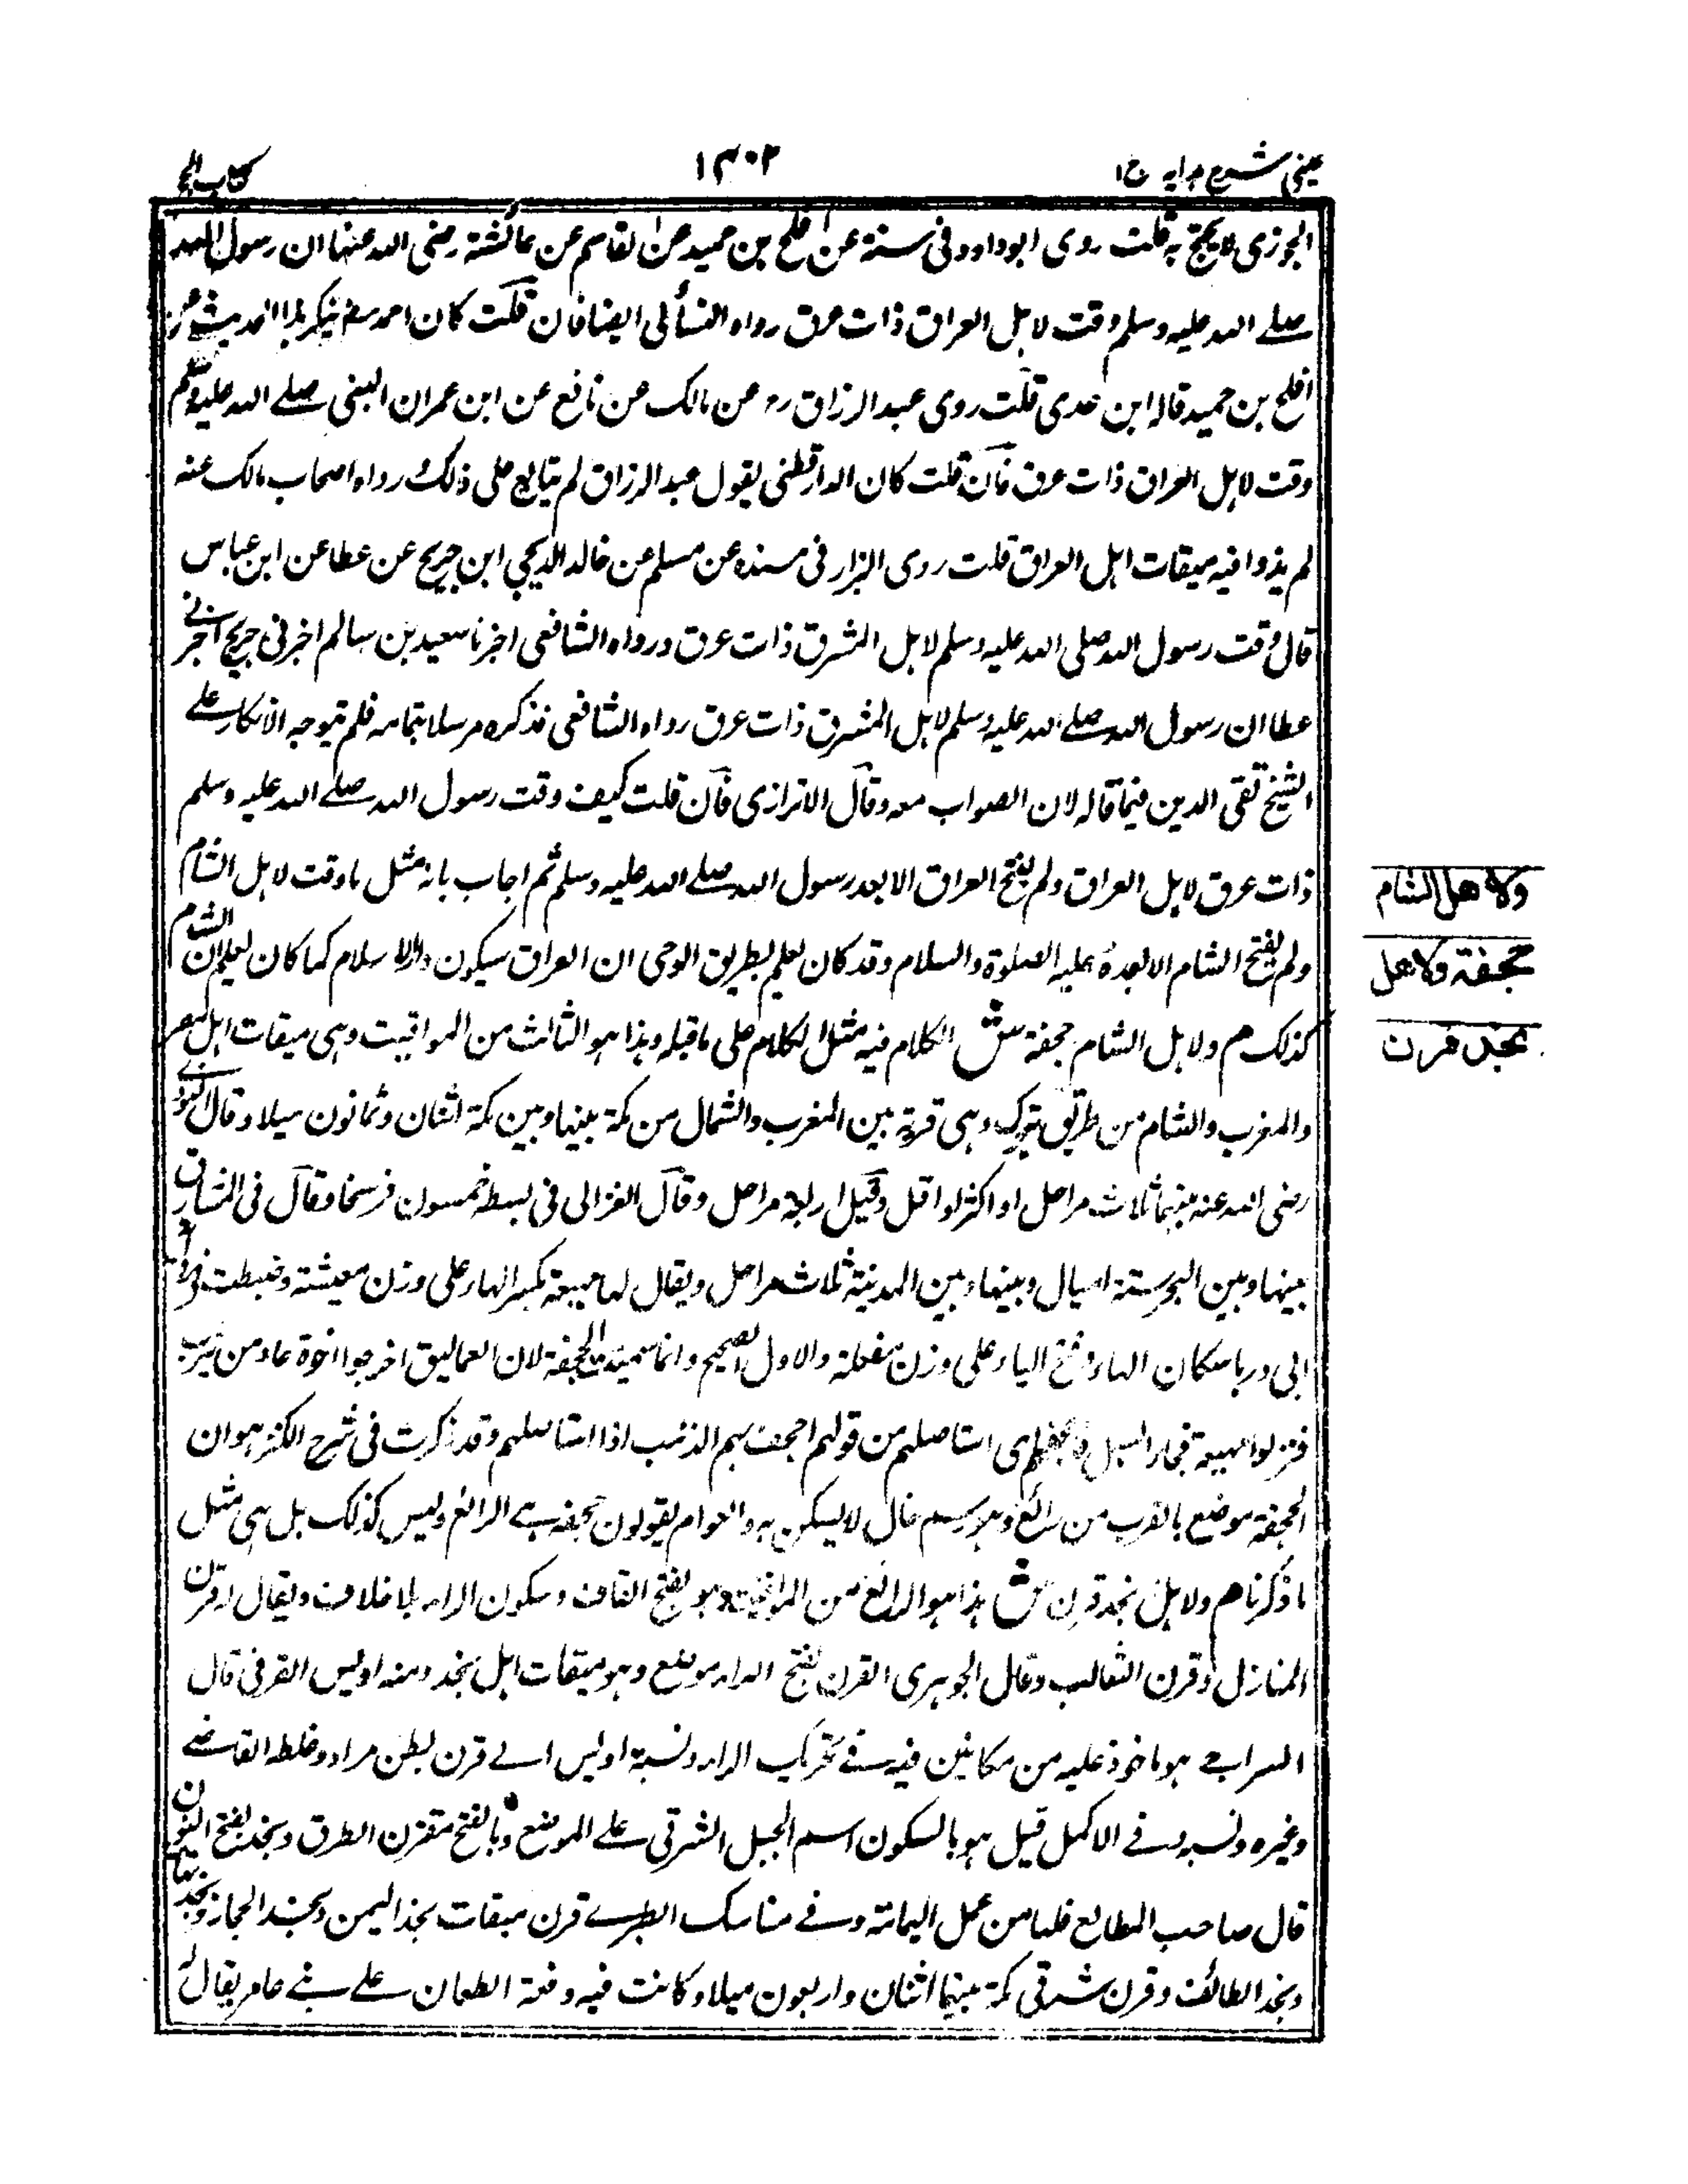 عینی شرح ہدایہ ج۱
۱۳۰۲
کتاب الحج
الجوزی لا یحتج بہ قلت روی ابوداود فی سننہ عن افلح بن حمید عن القاسم عن عائشۃ رضی اللہ عنہا ان رسول اللہ
صلے اللہ علیہ وسلم وقت لاہل العراق ذات عرق رواہ النسائی ایضا فان قلت کان احمد ینکر ہذا الحدیث عن
افلح بن حمید قالہ ابن عدی قلت روی عبدالرزاق رہ عن مالک عن نافع عن ابن عمر ان النبی صلے اللہ علیہ وسلم
وقت لاہل العراق ذات عرق فان قلت کان الدارقطنی یقول عبدالرزاق لم یتابع علی ذلک و رواہ اصحاب مالک عنہ
لم یذکروا فیہ میقات اہل العراق قلت روی البزار فی مسندہ عن مسلم عن خالد ابن جریج عن عطا عن ابن عباس
قال وقت رسول اللہ صلی اللہ علیہ وسلم لاہل المشرق ذات عرق ورواہ الشافعی اخبرنا سعید بن سالم اخبرنی جریج اخبرنے
عطا ان رسول اللہ صلے اللہ علیہ وسلم لاہل المشرق ذات عرق رواہ الشافعی فذکرہ مرسلا بتمامہ فلم یتوجہ الانکار علے
الشیخ تقی الدین فیما قالہ لان الصواب معہ وقال الاترازی فان قلت کیف وقت رسول اللہ صلے اللہ علیہ وسلم
ذات عرق لاہل العراق ولم یفتح العراق الا بعد رسول اللہ صلے اللہ علیہ وسلم ثم اجاب بانہ مثل ما وقت لاہل الشام
ولم یفتح الشام الا بعدہ علیہ الصلوۃ والسلام وقد کان یعلم بطریق الوحی ان العراق سیکون دارالاسلام کما کان یعلم ان الشام
کذلک م ولاہل الشام جحفۃ ش الکلام فیہ مثل الکلام علی ما قبلہ وہذا ہو الثالث من المواقیت وہی میقات اہل مصر
والمغرب والشام من طریق تبوک وہی قریۃ بین المغرب والشمال من مکۃ بینہا وبین مکۃ اثنان وثمانون میلا وقال النووے
رضی اللہ عنہ بینہما ثلاث مراحل او اکثر او اقل وقیل اربعۃ مراحل وقال الغزالی فی بسیطہ خمسون فرسخا وقال فی المشارق
بینہا وبین البحر ستۃ امیال وبینہا وبین المدینۃ ثلاث مراحل ویقال لہا مہیعۃ بکسر الہاء علی وزن معیشۃ وضبطت
ابی ذر باسکان الہاء وفتح الیاء علی وزن مفعلۃ والاول الصحیح وانما سمیت الجحفۃ لان العمالیق اخرجوا اخوۃ عاد من یثرب
فنزلوا مہیعۃ فجاء السیل فاجحفہم ای استاصلہم من قولہم اجحف بہم الذئب اذا استاصلہم وقد ذکرت فی شرح الکنز ہو ان
الجحفۃ موضع بالقرب من رائغ وہو رسم خال لا یسکن بہ والعوام یقولون جحفہ ہے الرائغ ولیس کذلک بل ہی مثل
ما ذکرنا م ولاہل نجد قرن ش ہذا ہو الرابع من المواقیت وہو بفتح القاف وسکون الراء بلا خلاف ویقال لہ قرن
المنازل وقرن الثعالب وقال الجوہری القرن بفتح الراء موضع وہو میقات اہل نجد ومنہ اویس القرنی قال
السراجے ہو ماخوذ علیہ من مکانین فیہ فے تحریک الراء ونسبۃ اویس الے قرن بطن مراد وغلطہ القاضے
وغیرہ ونسبہ وفے الاکمل قیل ہو بالسکون اسم الجبل الشرقی علے الموضع وبالفتح مفترق الطرق ونجد بفتح النون
قال صاحب المطالع من عمل الیمامۃ وفے مناسک الطبرے قرن میقات نجد الیمن ونجد الحجاز ونجد
ونجد الطائف وقرن شرقی مکۃ بینہما اثنان واربعون میلا وکانت فیہ وقعۃ الطعان علے بنے عامر یقال لہ
ولاھل الشام
جحفة ولاھل
نجد قرن